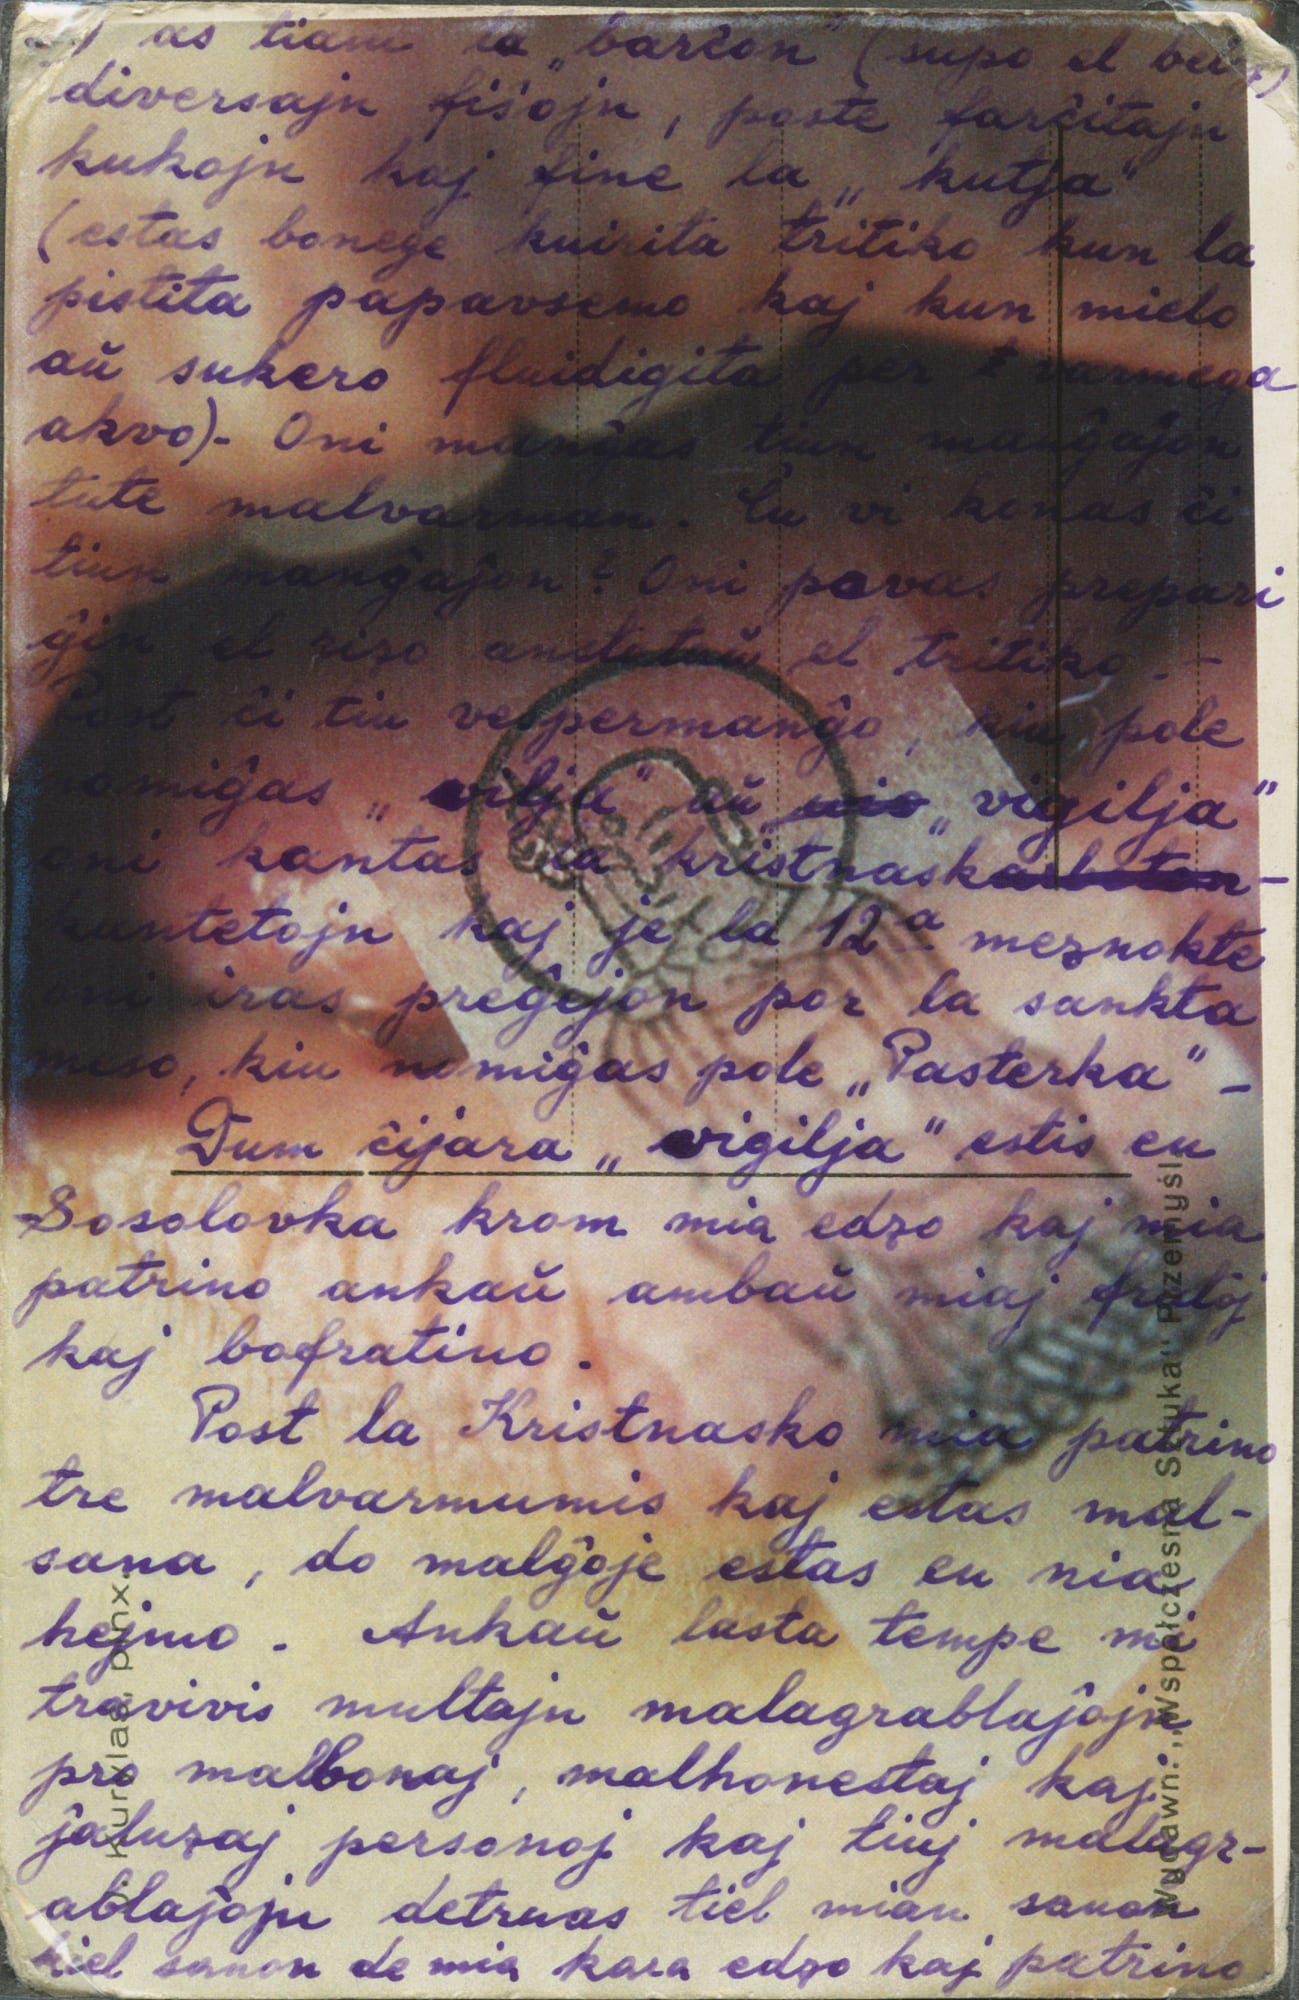 as tiam la „barĉon" (supo el
diversajn fiŝojn, poste farĉitajn
kukojn kaj fine la „kutja"
(estas bonege kuirita tritiko kun la
pistita papavsemo kaj kun mielo
aŭ sukero fluidigita per varmega
akvo)- Oni manĝas tiun manĝaĵon
tute malvarman. Ĉu vi konas ĉi
tiun manĝaĵon? Oni povas prepari
ĝin el rizo anstataŭ el tritiko. -
Post ĉi tiu vespermanĝo, kiu pole
nomiĝas „vilja" aŭ „vigilja"
oni kantas la kristnaska-
kantetojn kaj je la 12ª meznokte
oni iras preĝejon por la sankta
meso, kiu nomiĝas pole „Pasterka" -
Dum ĉijara „vigilja" estis en
Sosolovka krom mia edzo kaj mia
patrino ankaŭ ambaŭ miaj fratoj
kaj bofratino.
Post la Kristnasko mia patrino
tre malvarmumis kaj estas mal-
sana, do malĝoje estas en nia
hejmo. Ankaŭ lasta tempe mi
travivis multajn malagrablaĵojn
pro malbonaj, malhonestaj kaj
ĵaluzaj personoj kaj tiuj malagr-
ablaĵojn detruas tiel mian sanon
kiel sanon de mia kara edzo kaj patrino
Wydawn.: „Współczesna Sztuka" Przemyśl
pinx.